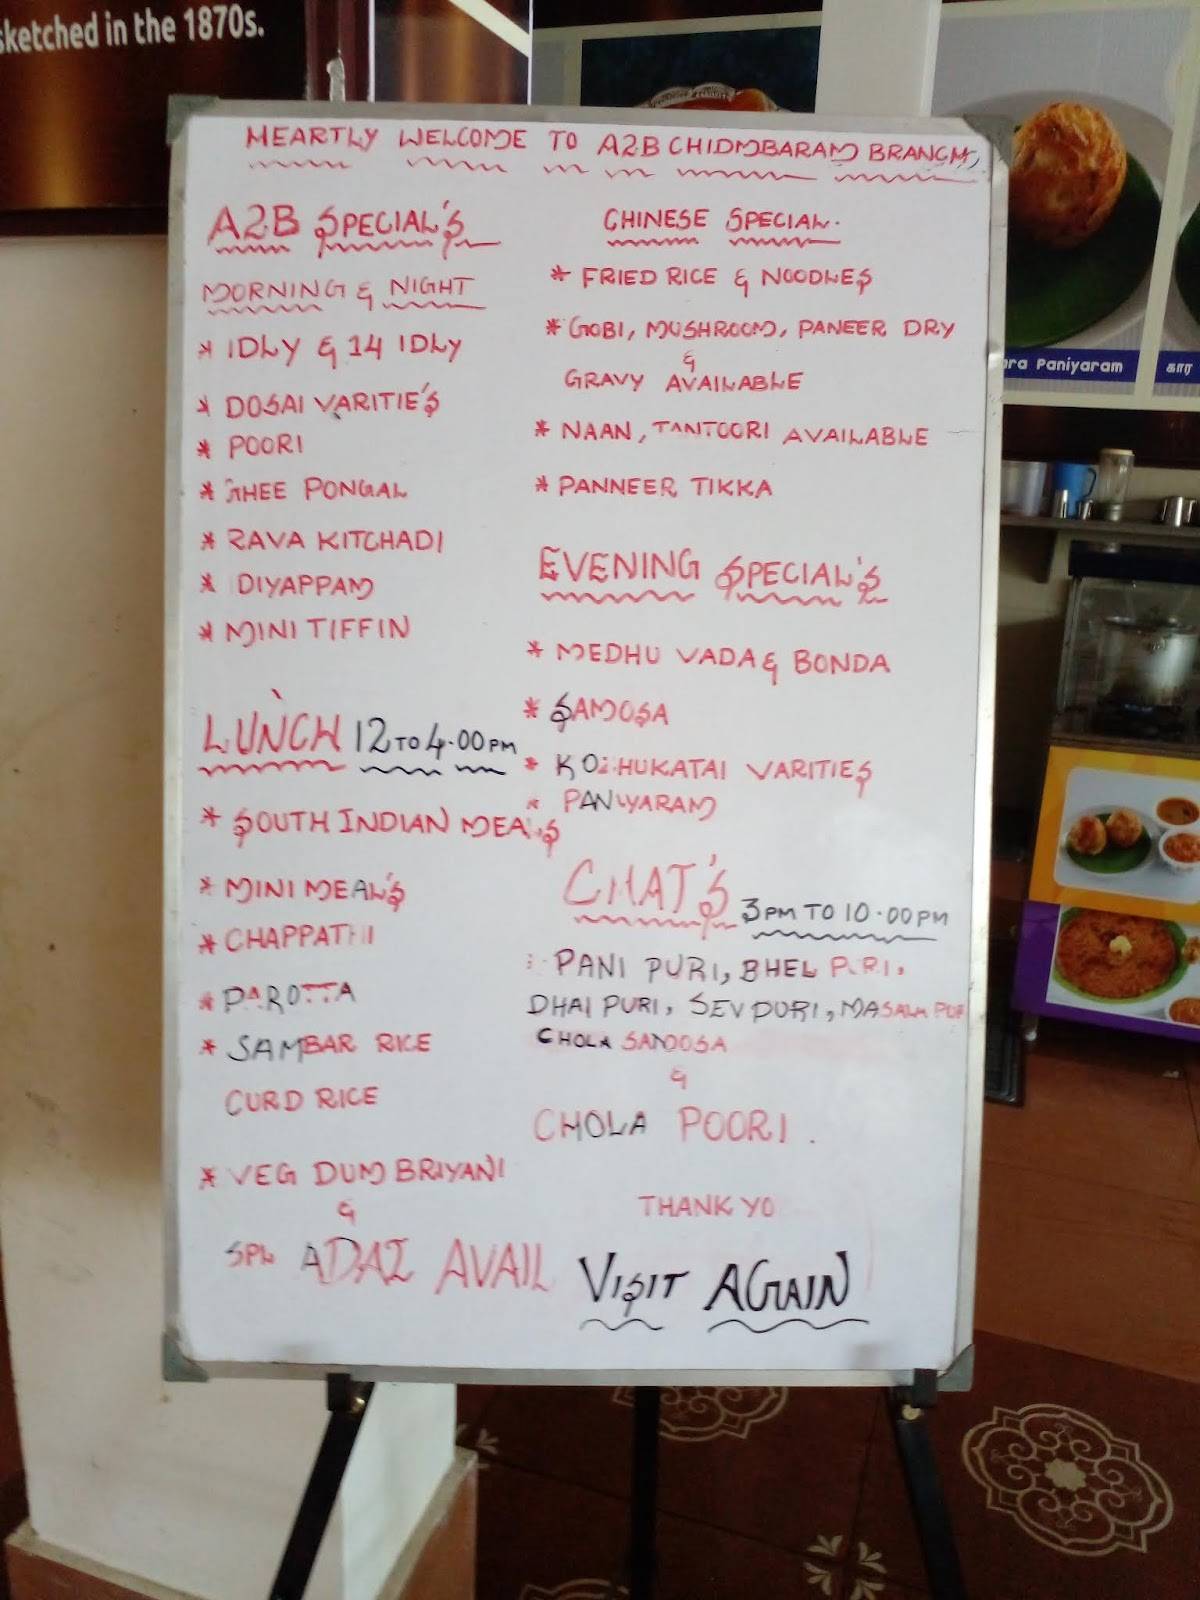 sketched in the 1870s.
HEARTLY WELCOME TO A2B CHIDMBARAM BRANCH,
A2B SPECIAL'S
MORNING & NIGHT
* IDLY & 14 IDLY
* DOSAI VARITIE'S
* POORI
* GHEE PONGAL
* RAVA KITCHADI
* IDIYAPPAM
* MINI TIFFIN
LUNCH 12 TO 4.00 PM
* SOUTH INDIAN MEAL'S
* MINI MEAL'S
* CHAPPATHI
* PAROTTA
* SAMBAR RICE
CURD RICE
* VEG DUM BRIYANI
&
SPL ADAI AVAIL
CHINESE SPECIAL.
* FRIED RICE & NOODLES
* GOBI, MUSHROOM, PANEER DRY
&
GRAVY AVAILABLE
* NAAN, TANTOORI AVAILABLE
* PANNEER TIKKA
EVENING SPECIAL'S
* MEDHU VADA & BONDA
* SAMOSA
* KOZHUKATAI VARITIES
* PANIYARAM
CHAT'S 3PM TO 10.00PM
PANI PURI, BHEL PURI,
DHAI PURI, SEV PURI, MASALA PUR
CHOLA SAMOSA
&
CHOLA POORI.
THANK YO
VISIT AGAIN
ara Paniyaram
கார